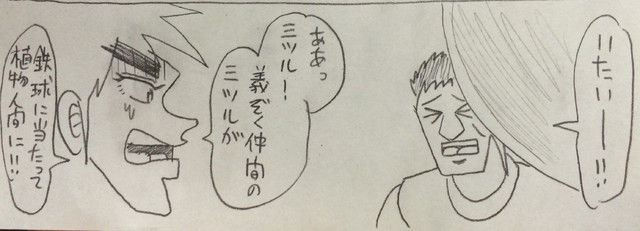 いたいー!!
ああっ
ミツル!
義ぞく仲間の
ミツルが
鉄球に当たって
植物人間に!!